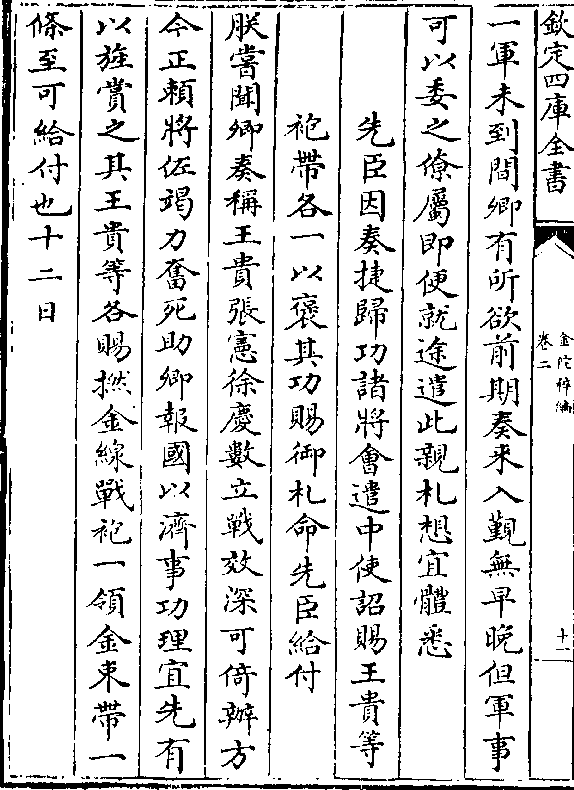 欽定四庫全書
金陀稡編
卷二
十二
一軍未到間卿有所欲前期奏来入覲無早晚但軍事
可以委之僚屬即便就途遣此親札想宜體悉
先臣因奏捷歸功諸將㑹遣中使詔賜王貴等
袍帶各一以褒其功賜御札命先臣給付
朕嘗聞卿奏稱王貴張憲徐慶數立戰效深可倚辦方
今正頼將佐竭力奮死助卿報國以濟事功理宜先有
以旌賞之其王貴等各賜撚金線戰袍一領金束帶一
條至可給付也十二日